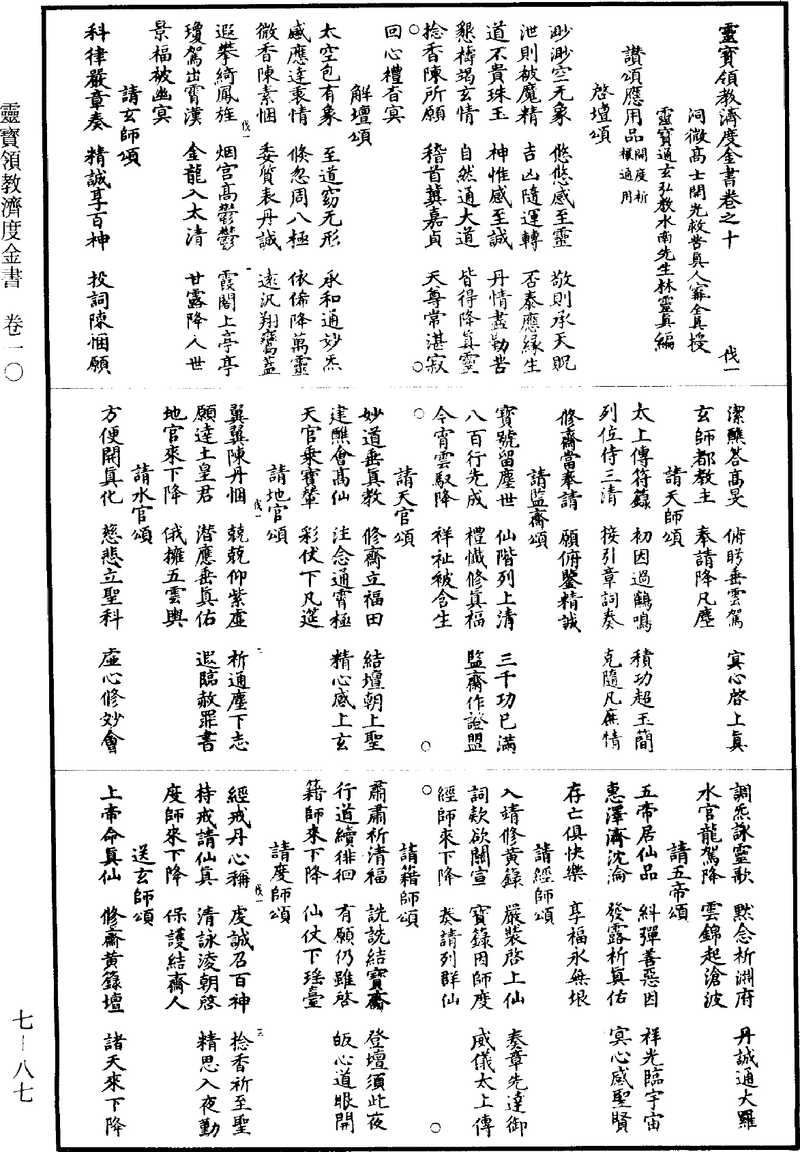 靈寶領教濟度金書卷之十 伐一
洞微高士開光救苦真人甯全真授
靈寶通玄弘教水南先生林靈真編
讚頌應用品 開度祈禳通用
啓壇頌
渺渺空无象 悠悠感至靈 敬則承天貺
泄則被魔精 吉凶隨運轉 否泰應緣生
道不貴珠玉 神惟感至誠 丹情盡勤苦
懇禱竭玄情 自然通大道 皆得降真靈
捻香陳所願 稽首冀嘉貞 天尊常湛寂
回心禮杳冥
解壇頌
太空包有象 至道窈无形 承和通妙炁
感應達衷情 倐忽周八極 依俙降萬靈
微香陳素悃 委質表丹誠 遠汎翔鸞蓋
遐攀綺鳳旌 烟宮高鬱鬱 霞閣上亭亭
瓊駕出霄漢 金龍入太清 甘露降人世
景福被幽冥
請玄師頌
科律嚴章奏 精誠享百神 投詞陳悃願
潔醮荅高旻 俯眄垂雲駕 冥心啓上真
玄師都教主 奉請降凡塵
請天師頌
太上傳符籙 初因過鶴鳴 積功超玉簡
列位侍三清 接引章詞奏 克隨凡庶情
修齋當奉請 願俯鑒精誠
請監齋頌
寶號留塵世 仙階列上清 三千功已滿
八百行先成 禮懺修真福 監齋作證盟
今宵雲馭降 祥祉被含生
請天官頌
妙道垂真教 修齋立福田 結壇朝上聖
建醮會高仙 注念通霄極 精心感上玄
天官乘寶輦 彩仗下凡筵
請地官頌
翼翼陳丹悃 兢兢仰紫虛 祈通塵下志
願達土皇君 潜應垂真佑 遐臨赦罪書
地官來下降 俄擁五雲輿
請水官頌
方便開真化 慈悲立聖科 虛心修妙會
調炁詠靈歌 默念祈淵府 丹誠通大羅
水官龍駕降 雲錦起滄波
請五帝頌
五帝居仙品 糾彈善惡因 祥光臨宇宙
惠澤濟沈淪 發露祈真佑 冥心感聖賢
存亡俱快樂 享福永無垠
請經師頌
入靖修黃籙 嚴裝啓上仙 奏章先達御
詞欵欲關宣 寶籙因師度 威儀太上傳
經師來下降 奏請列群仙
請籍師頌
肅肅祈清福 詵詵結寶齋 登壇須此夜
行道續徘徊 有願仍雖啓 皈心道眼開
籍師來下降 仙仗下瑶臺
請度師頌
經戒丹心稱 虔誠召百神 捻香祈至聖
持戒請仙真 清詠淩朝啓 精思入夜勤
度師來下降 保護結齋人
送玄師頌
上帝命真仙 修齋黃籙壇 諸天來下降
靈寶領教濟度金書 卷一〇
七—八七